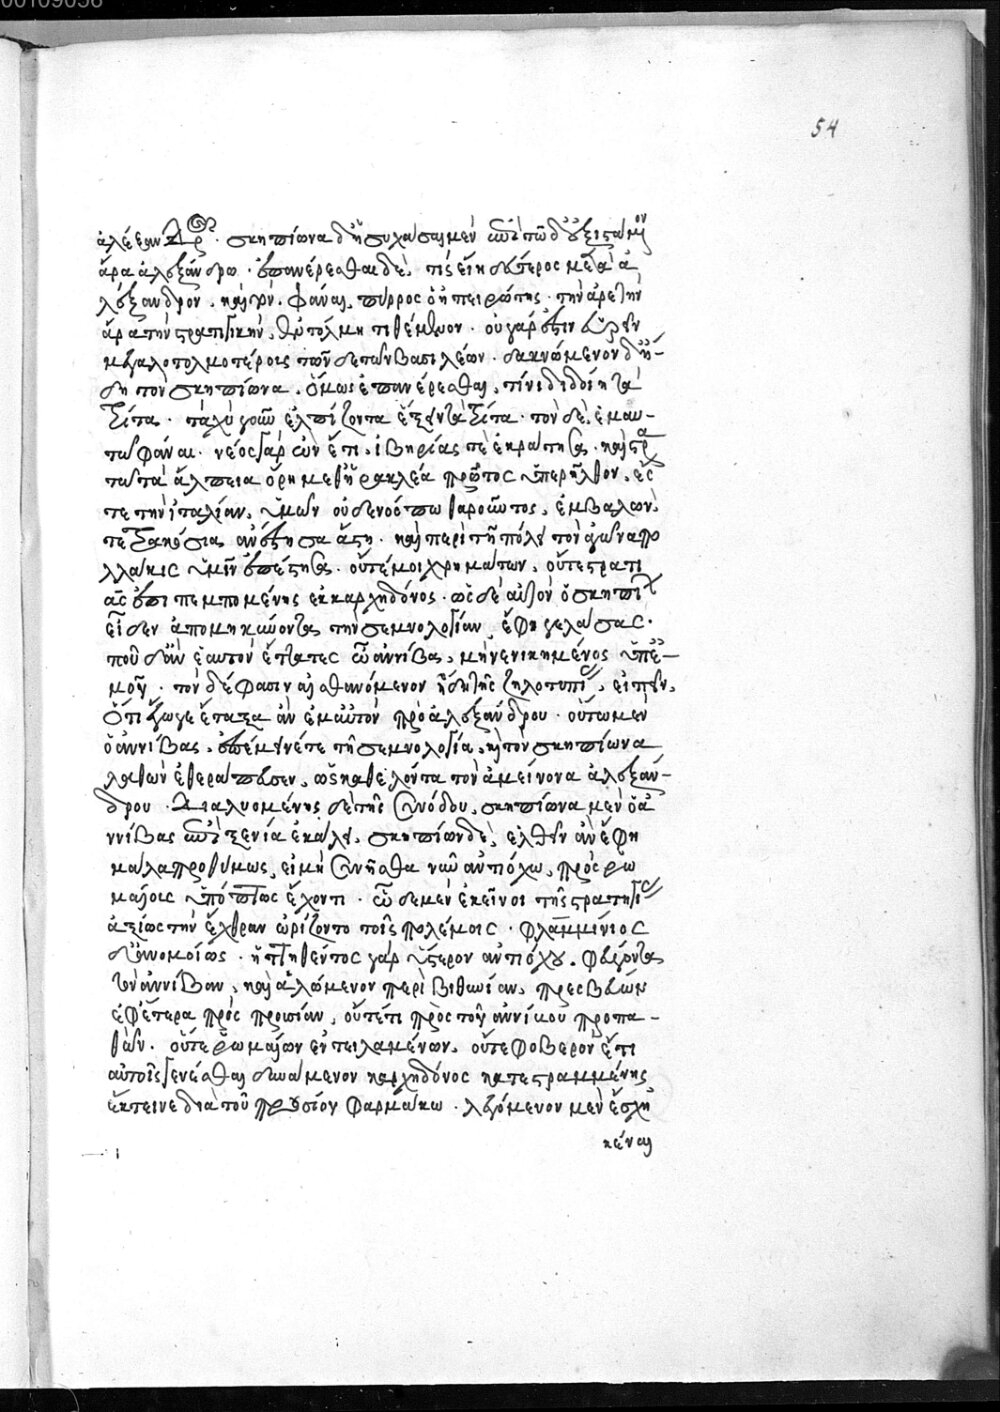 00109058
54
ἀλέξανδρος. σκηπίωνα δ' ἡσυχάσαι μὲν ἐπὶ τῶδ' ἐξιστάμενον
ἄρα ἀλεξάνδρω. ἐπανερέσθαι δὲ, τίς εἴη δεύτερος μετὰ ἀ
λέξανδρον. καὶ τὸν φάναι, πύρρος ὁ ἠπειρώτης. τὴν ἀρετὴν
ἄρα τὴν στρατηγικὴν, ἐν τόλμη τιθέμενον. οὐ γάρ ἐστιν εὑρεῖν
μεγαλοτολμοτέροις τῶνδε τῶν βασιλέων. δακνόμενον δ' ἤ-
δη τὸν σκηπίωνα, ὅμως ἐπανερέσθαι, τίνι διδοίη τὰ
τρίτα. πάνυ γοῦν ἐλπίζοντα ἕξειν τὰ τρίτα. τὸν δὲ, ἐμαυ-
τῶ φάναι. νέος γὰρ ὢν ἔτι, ἰβηρίας τὲ ἐκράτησα. καὶ στρα
τῶ τὰ ἄλπεια ὄρη μεθ' ἡρακλέα πρῶτος ὑπερῆλθον. ἔς
τε τὴν ἰταλίαν, ὑμῶν οὐδενός πω θαροῦντος, ἐμβαλὼν,
τετρακόσια ἀνέστησα ἄστη. καὶ περὶ τῆ πόλει τὸν ἀγῶνα πο
λλάκις ὑμῖν ἐπέστησα. οὔτέ μοι χρημάτων, οὔτε στρατι
ᾶς ἐπιπεμπομένης ἐκ καρχηδόνος. ὡς δὲ αὐτὸν ὁ σκηπίων
εἶδεν ἀπομηκύνοντα τὴν σεμνολογίαν, ἔφη γελάσας.
ποῦ δ' ἂν ἑαυτὸν ἔταττες ὦ ἀννίβα, μὴ νενικημένος ὑπ' ἐ-
μοῦ. τὸν δέ φασιν αἰσθανόμενον ἤδη τῆς ζηλοτυπίας, εἰπεῖν,
ὅτι ἔγωγε ἔταξα ἂν ἐμαυτὸν πρὸ ἀλεξάνδρου. οὕτω μὲν
ὁ ἀννίβας, ἐπέμεινέ τε τῆ σεμνολογία, καὶ τὸν σκηπίωνα
λαθὼν ἐθεράπευσεν, ὡς καθελόντα τὸν ἀμείνονα ἀλεξάν-
δρου. Διαλυομένης δὲ τῆς συνόδου, σκηπίωνα μὲν ὁ ἀ
ννίβας ἐπὶ ξενία ἐκάλει. σκηπίων δὲ, ἐλθεῖν ἂν ἔφη
μάλα προθύμως, εἰ μὴ συνῆσθα νῦν ἀντιόχω, πρὸς ῥω
μαίοις ὑπόπτως ἔχοντι. ὧδε μὲν ἐκεῖνοι τῆς στρατηγίας
ἀξίως τὴν ἔχθραν ὡρίζοντο τοῖς πολέμοις. φλαμμίνιος
δ' ἀνομοίως. ἡττηθέντος γὰρ ὕστερον ἀντιόχου, φεύγοντα
τὸν ἀννίβαν, καὶ ἀλώμενον περὶ βιθυνίαν, πρεσβεύων
ἐφ' ἕτερα πρὸς προυσίαν, οὔτέ τι πρὸς τοῦ ἀννίβου προπα-
θὼν. οὔτε ῥωμαίων ἐντειλαμένων. οὔτε φοβερὸν ἔτι
αὐτοῖς γενέσθαι δυνάμενον καρχηδόνος κατεστραμμένης
ἔκτεινε διὰ τοῦ προυσίου φαρμάκω. λεγόμενον μὲν ἐσχη
κέναι